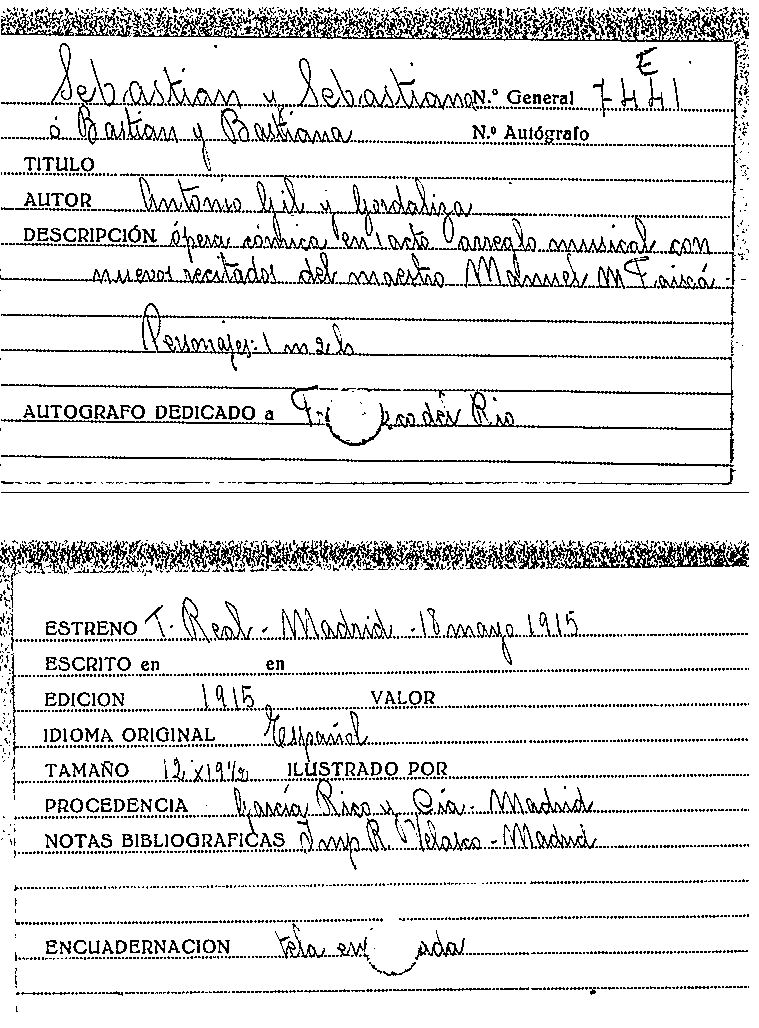 E
Sebastian y Sebastiana N.º General 7441
ó Bastian y Bastiana N.º Autógrafo
TITULO
AUTOR Antonio Gil y Gordaliza
DESCRIPCIÓN ópera cómica en 1 acto arreglo musical con
nuevos recitados del maestro Manuel Mª Faixá.
Personajes: 1 m 2 h
AUTOGRAFO DEDICADO a Rio
ESTRENO T. Real - Madrid - 18 mayo 1915
ESCRITO en en
EDICION 1915 VALOR
IDIOMA ORIGINAL Español
TAMAÑO 12 x 19½ ILUSTRADO POR
PROCEDENCIA García Rico y Cía - Madrid
NOTAS BIBLIOGRAFICAS Imp R. Velasco - Madrid
ENCUADERNACION tela en ada